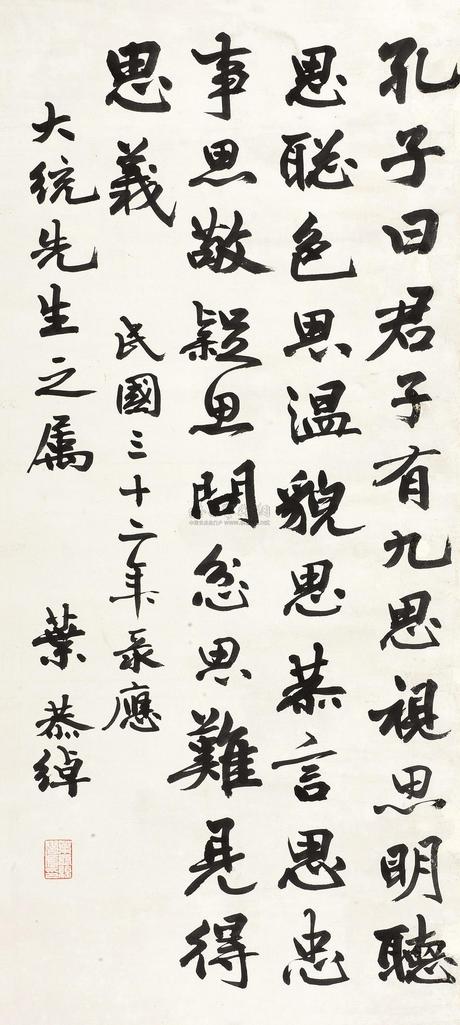 孔子曰君子有九思視思明聽
思聰色思温貌思恭言思忠
事思敬疑思問忿思難見得
思義
民國三十二年录應
大統先生之属
葉恭綽